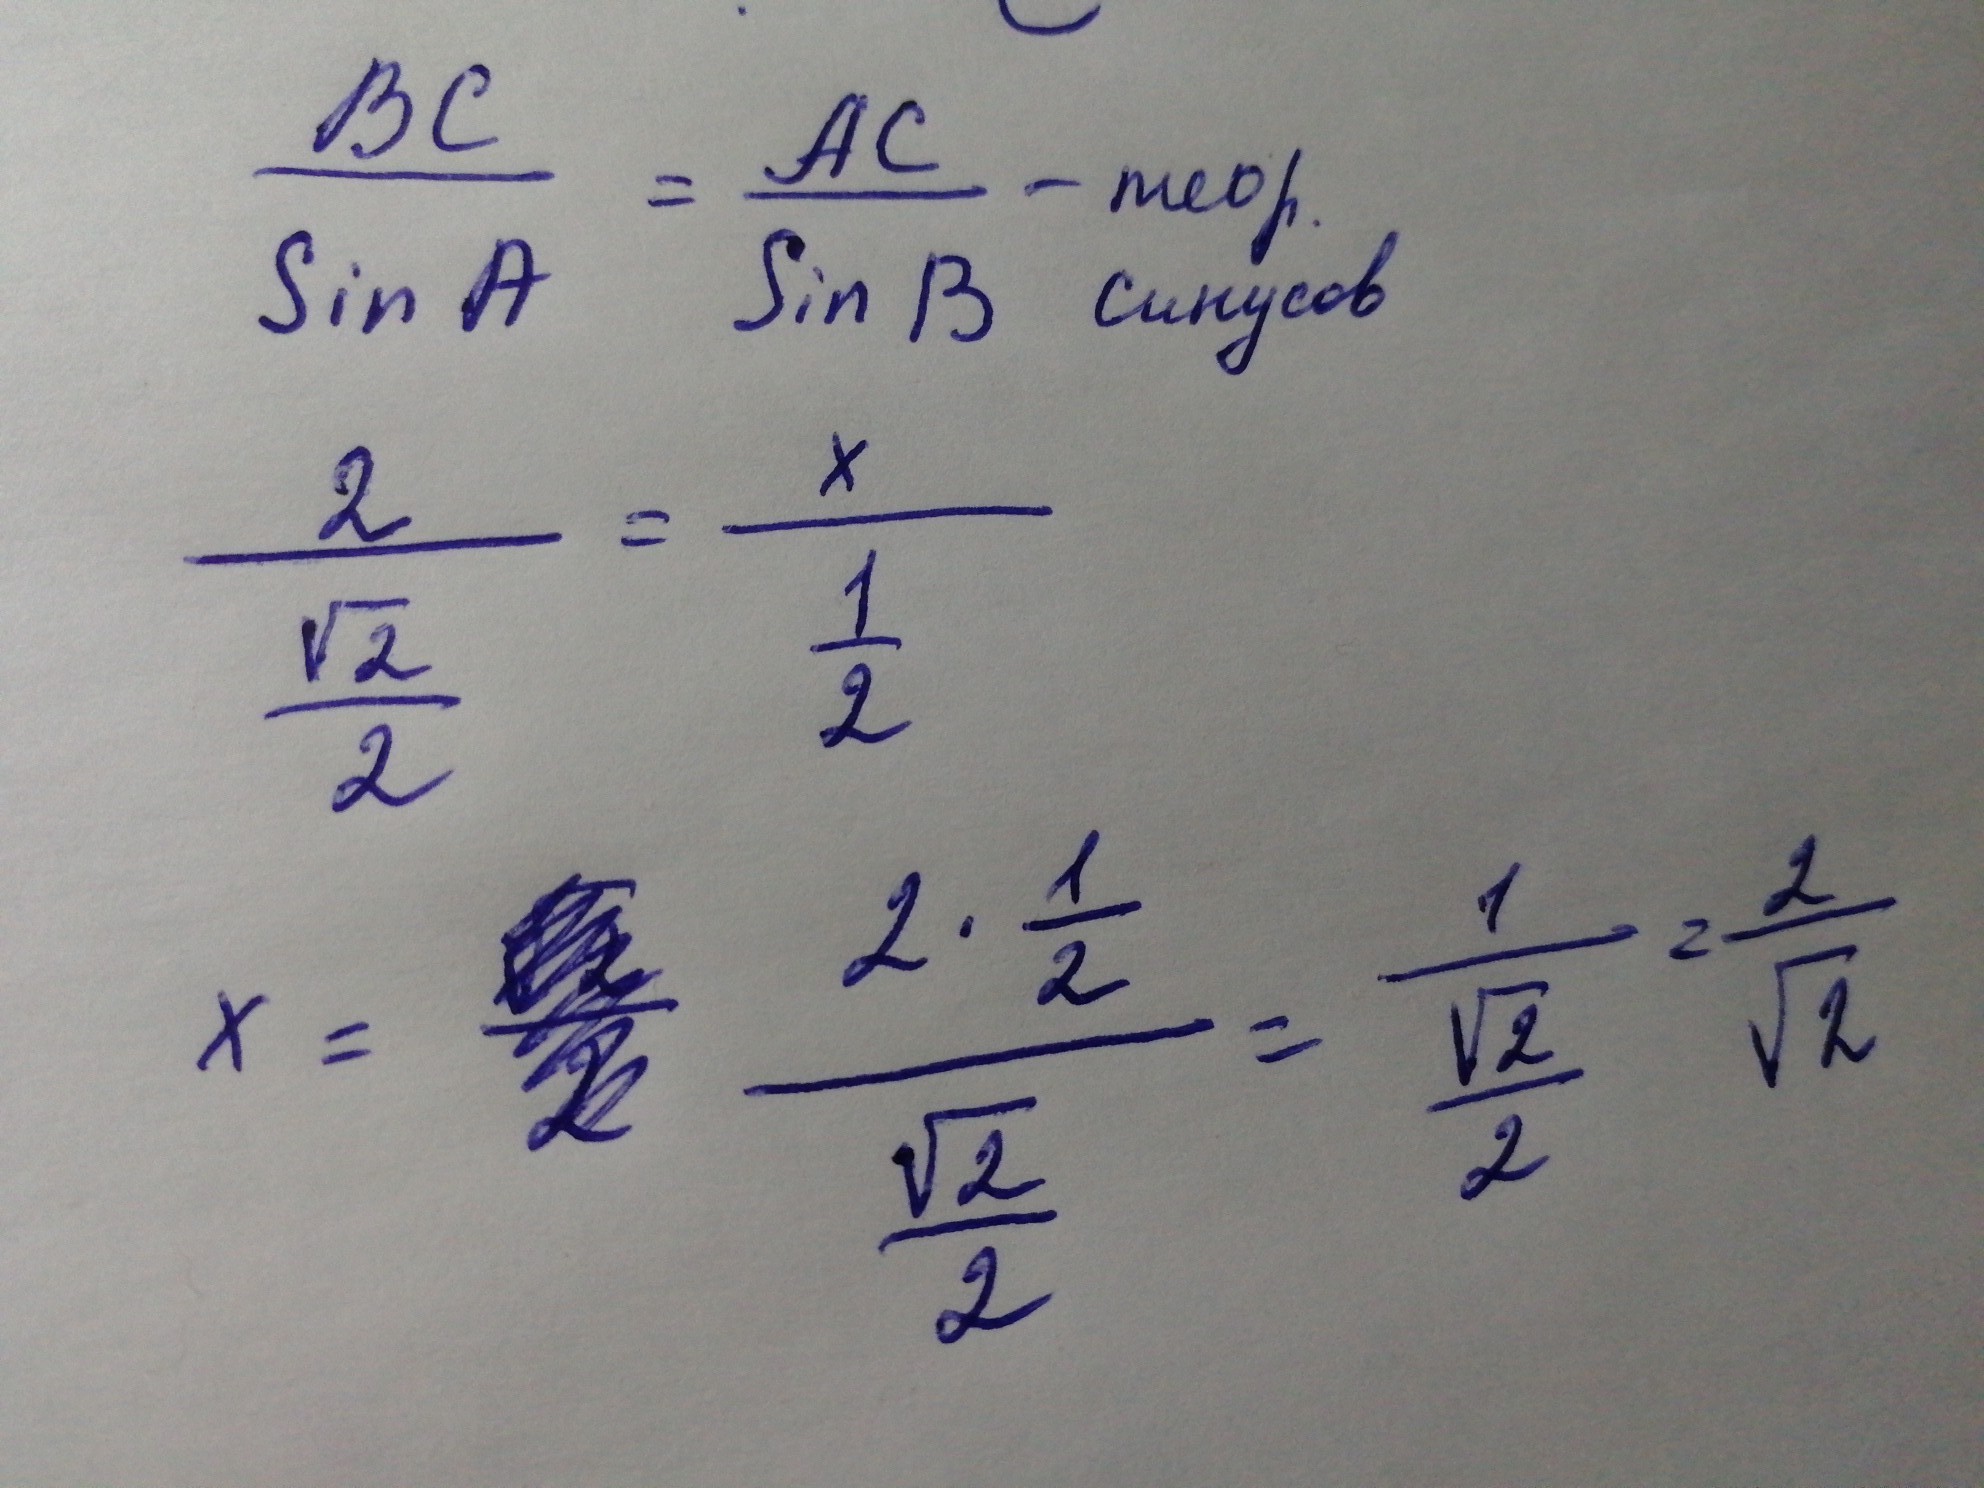 BC/Sin A = AC/Sin B – теор. синусов
2/(√2/2) = x/(1/2)
x = (2 · 1/2)/(√2/2) = 1/(√2/2) = 2/√2